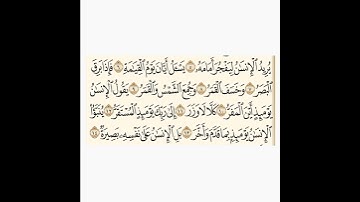 يُرِيدُ ٱلْإِنسَٰنُ لِيَفْجُرَ أَمَامَهُۥ ۝٥ يَسْـَٔلُ أَيَّانَ يَوْمُ ٱلْقِيَٰمَةِ ۝٦ فَإِذَا بَرِقَ
ٱلْبَصَرُ ۝٧ وَخَسَفَ ٱلْقَمَرُ ۝٨ وَجُمِعَ ٱلشَّمْسُ وَٱلْقَمَرُ ۝٩ يَقُولُ ٱلْإِنسَٰنُ
يَوْمَئِذٍ أَيْنَ ٱلْمَفَرُّ ۝١٠ كَلَّا لَا وَزَرَ ۝١١ إِلَىٰ رَبِّكَ يَوْمَئِذٍ ٱلْمُسْتَقَرُّ ۝١٢ يُنَبَّؤُا۟
ٱلْإِنسَٰنُ يَوْمَئِذٍۭ بِمَا قَدَّمَ وَأَخَّرَ ۝١٣ بَلِ ٱلْإِنسَٰنُ عَلَىٰ نَفْسِهِۦ بَصِيرَةٌ ۝١٤